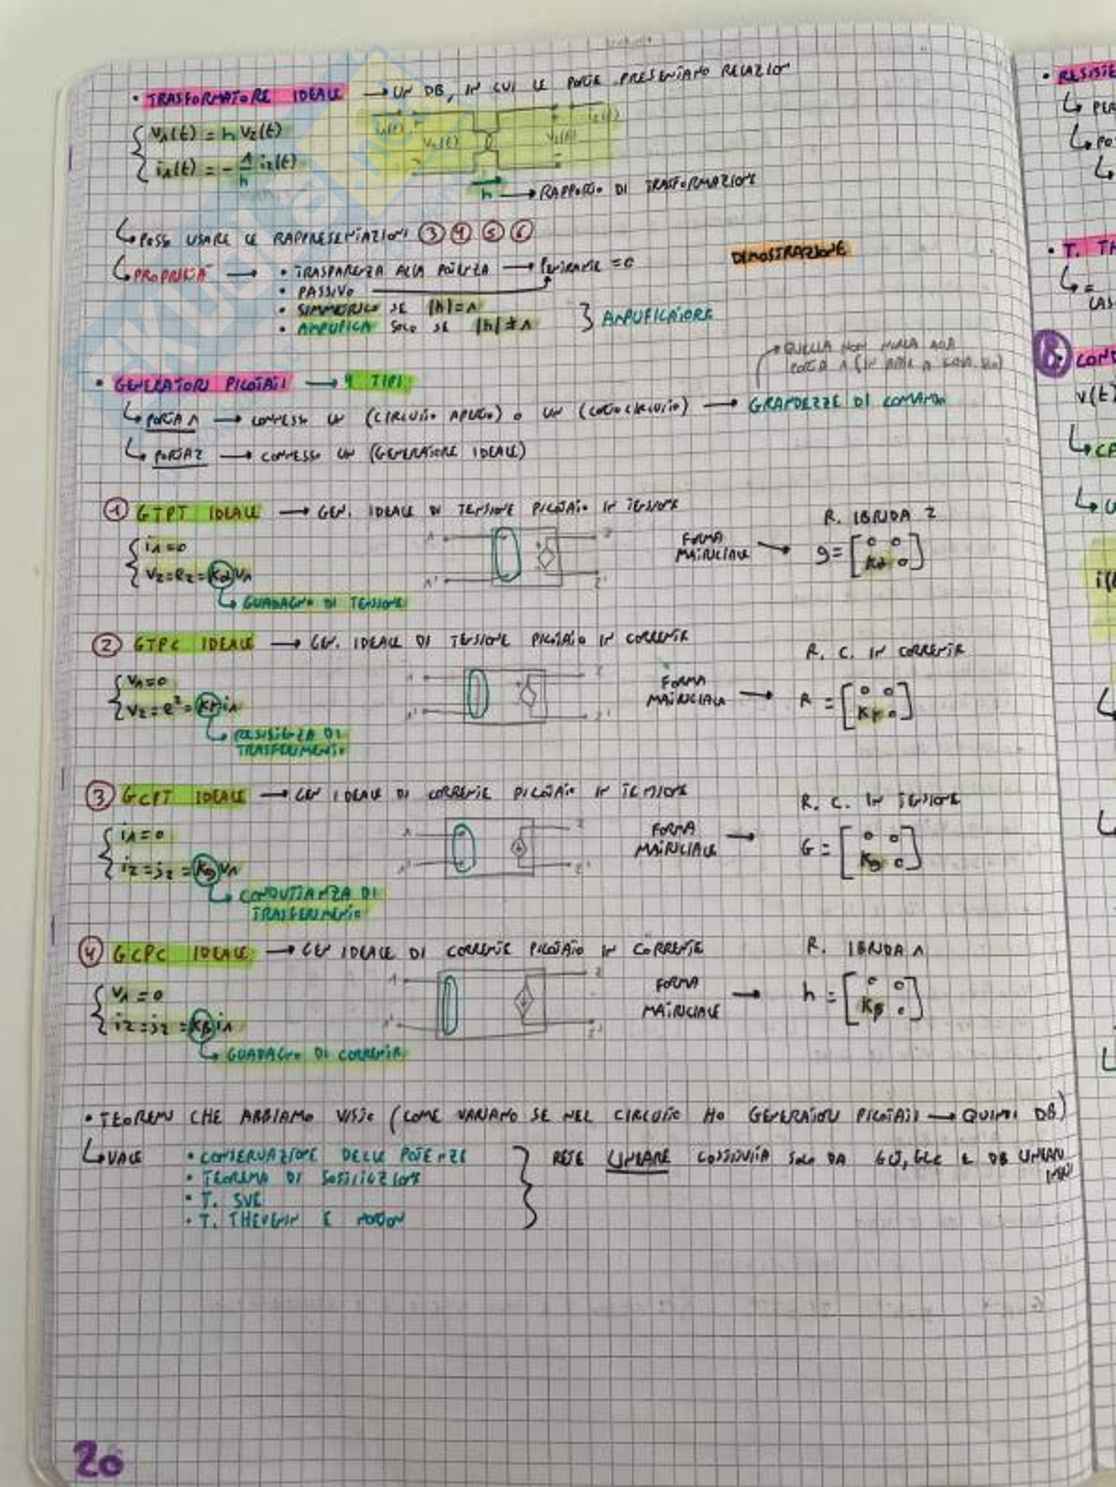 • TRASFORMATORE IDEALE → UN DB, IN CUI LE PORTE PRESENTANO RELAZIONI
v1(t) = n v2(t)
i1(t) = - 1/n i2(t)
n → RAPPORTO DI TRASFORMAZIONE
↳ POSS USARE LE RAPPRESENTAZIONI ③ ④ ⑤ ⑥
↳ PROPRIETÀ → • TRASPARENZA ALLA POTENZA → PENTRANTE = 0
• PASSIVO
• SIMMETRICO SE |n| = 1
• AMPLIFICA SOLO SE |n| ≠ 1 } AMPLIFICATORE
DIMOSTRAZIONE
QUELLA NON NULLA ALLA
PORTA 1
• GENERATORI PILOTATI → 4 TIPI
↳ PORTA 1 → CONNESSO UN (CIRCUITO APERTO) O UN (CORTOCIRCUITO) → GRANDEZZE DI COMANDO
↳ PORTA 2 → CONNESSO UN (GENERATORE IDEALE)
① GTPT IDEALE → GEN. IDEALE DI TENSIONE PILOTATO IN TENSIONE
i1=0
v2=e2=Kα v1
↳ GUADAGNO DI TENSIONE
1 1' 2'
FORMA
MATRICIALE →
R. IBRIDA 2
g = [0 0
Kα 0]
② GTPC IDEALE → GEN. IDEALE DI TENSIONE PILOTATO IN CORRENTE
v1=0
v2=e2=Kr i1
↳ RESISTENZA DI
TRASFERIMENTO
FORMA
MATRICIALE →
R. C. IN CORRENTE
R = [0 0
Kr 0]
③ GCPT IDEALE → GEN IDEALE DI CORRENTE PILOTATO IN TENSIONE
i1=0
i2=j2=Kg v1
↳ CONDUTTANZA DI
TRASFERIMENTO
FORMA
MATRICIALE →
R. C. IN TENSIONE
G = [0 0
Kg 0]
④ GCPC IDEALE → GEN IDEALE DI CORRENTE PILOTATO IN CORRENTE
v1=0
i2=j2=Kβ i1
↳ GUADAGNO DI CORRENTE
FORMA
MATRICIALE →
R. IBRIDA 1
h = [0 0
Kβ 0]
• TEOREMI CHE ABBIAMO VISTO (COME VARIANO SE NEL CIRCUITO HO GENERATORI PILOTATI → QUINDI DB)
↳ VALE • CONSERVAZIONE DELLE POTENZE
• TEOREMA DI SOSTITUZIONE
• T. SVE
• T. THEVENIN E NORTON
} RETE LINEARE COSTITUITA SOLO DA
20
• RESISTE
• T. TR
8.
COND
v(t)